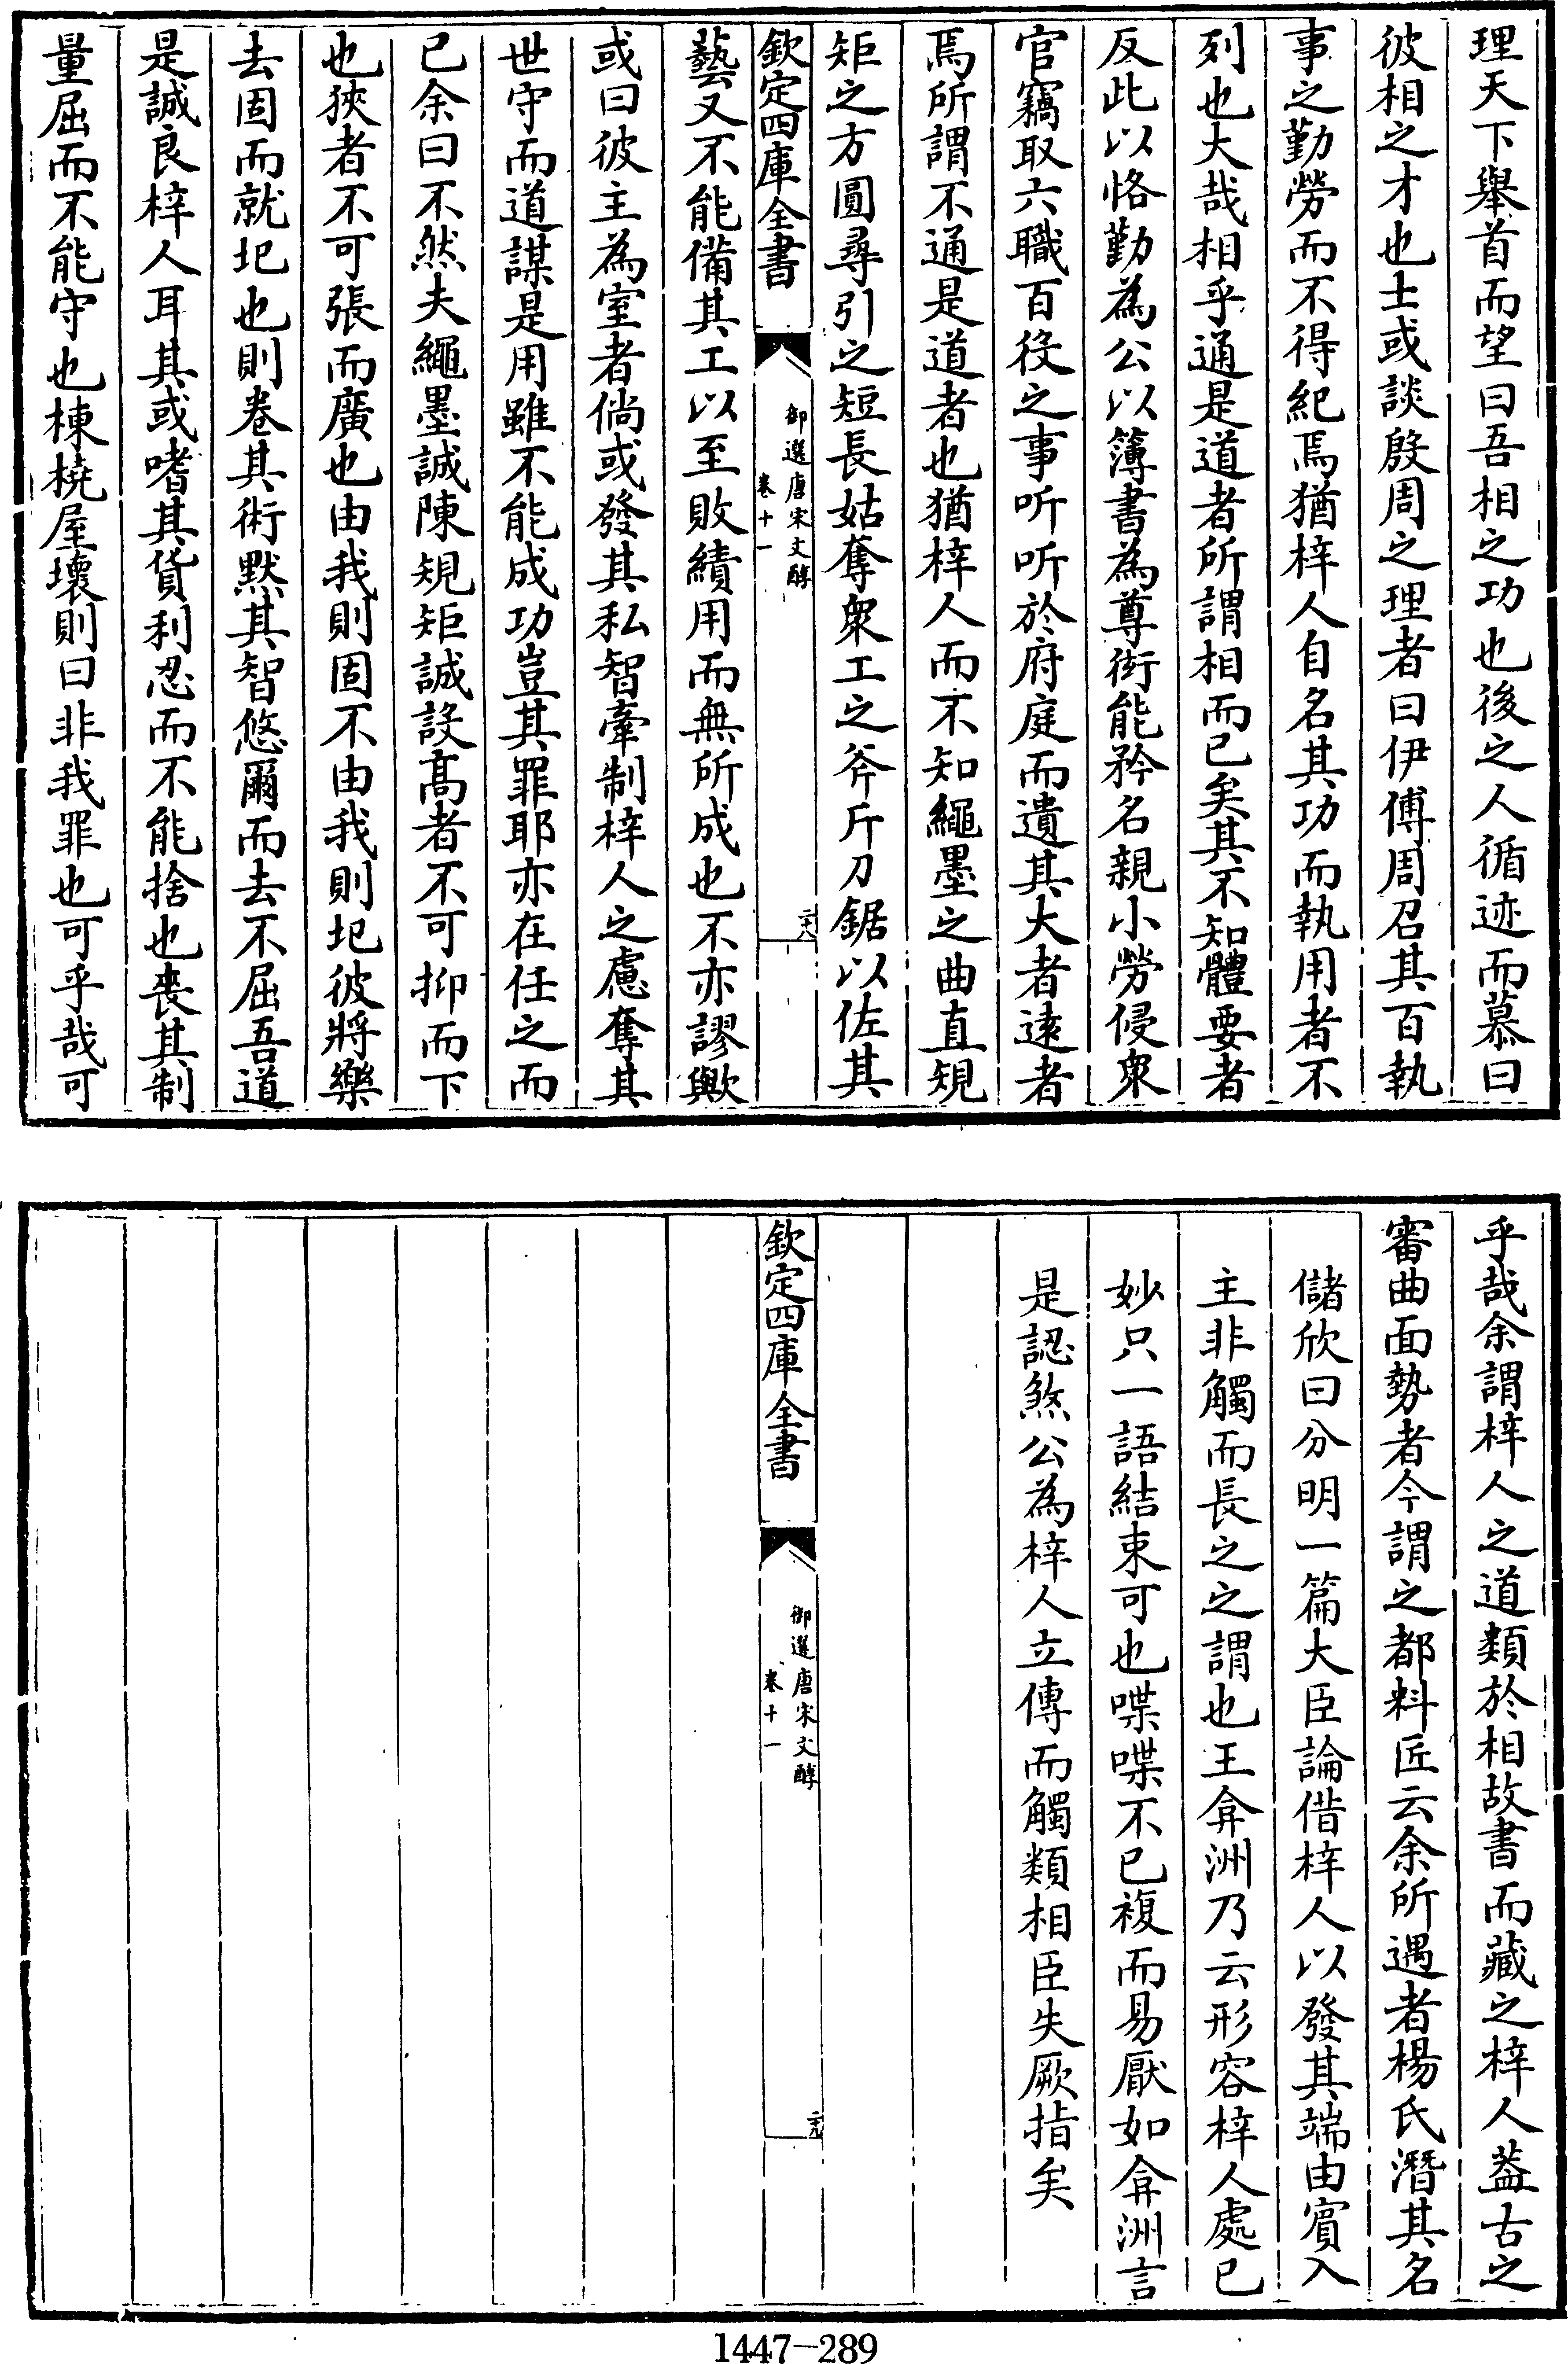 理天下舉首而望曰吾相之功也後之人循迹而慕曰
彼相之才也士或談殷周之理者曰伊傅周召其百執
事之勤勞而不得紀焉猶梓人自名其功而執用者不
列也大哉相乎通是道者所謂相而已矣其不知體要者
反此以恪勤為公以簿書為尊衒能矜名親小勞侵衆
官竊取六職百役之事听听於府庭而遺其大者逺者
焉所謂不通是道者也猶梓人而不知繩墨之曲直規
矩之方圓尋引之短長姑奪衆工之斧斤刀鋸以佐其
欽定四庫全書
御選唐宋文醇
卷十一
二十八
藝又不能備其工以至敗績用而無所成也不亦謬歟
或曰彼主為室者倘或發其私智牽制梓人之慮奪其
世守而道謀是用雖不能成功豈其罪耶亦在任之而
已余曰不然夫繩墨誠陳規矩誠設髙者不可抑而下
也狹者不可張而廣也由我則固不由我則圮彼將樂
去固而就圮也則卷其術默其智悠爾而去不屈吾道
是誠良梓人耳其或嗜其貨利忍而不能捨也喪其制
量屈而不能守也棟橈屋壞則曰非我罪也可乎哉可
乎哉余謂梓人之道類於相故書而藏之梓人葢古之
審曲面勢者今謂之都料匠云余所遇者楊氏潛其名
儲欣曰分明一篇大臣論借梓人以發其端由賓入
主非觸而長之之謂也王弇洲乃云形容梓人處已
妙只一語結束可也喋喋不已複而易厭如弇洲言
是認煞公為梓人立傳而觸類相臣失厥指矣
欽定四庫全書
御選唐宋文醇
卷十一
二十九
1447-289